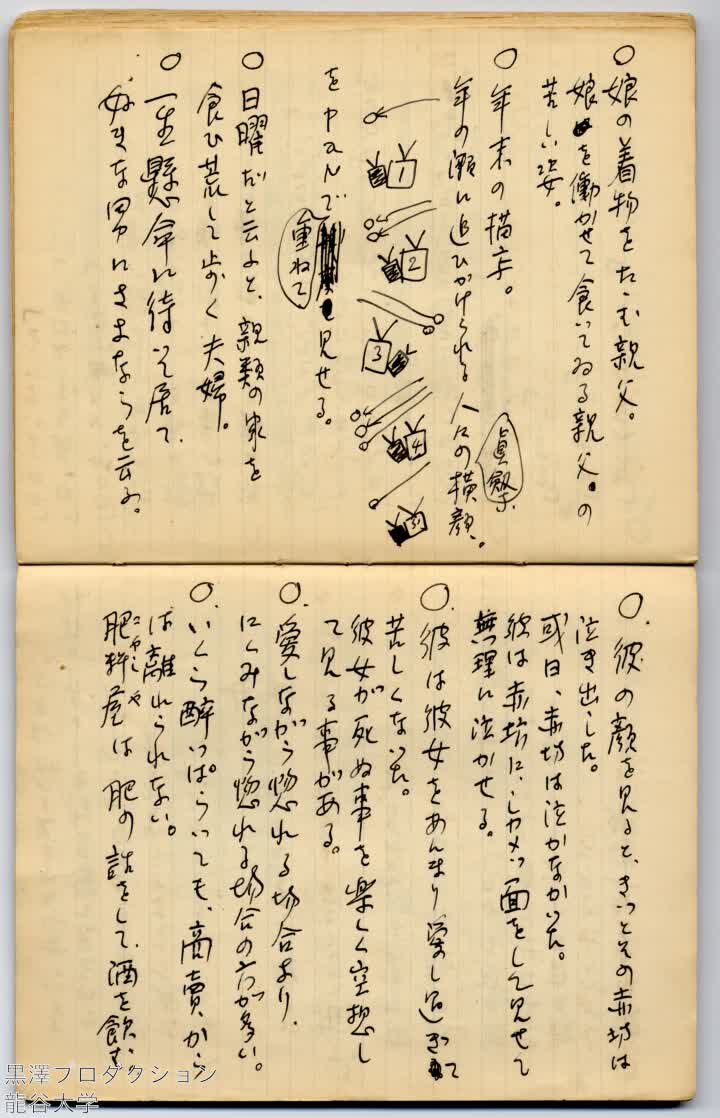 〇娘の着物をたゝむ親父。
娘を働かせて食いてゐる親父の
苦しい姿。
〇年末の描写。
年の瀬に追ひかけられる人々の横顔。
眞剱
1
2
3
4
5
をPANで
重ねて
見せる。
〇日曜だと云ふと、親類の家を
食ひ荒して歩く夫婦。
〇一生懸命に待つて居て、
好きな男にさよならを云ふ。
〇彼の顔を見ると、きつとその赤坊は
泣き出した。
或日、赤坊は泣かなかつた。
彼は赤坊に、しかめつ面をして見せて
無理に泣かせる。
〇彼は彼女をあんまり愛し過ぎて
苦しくなつた。
彼女が死ぬ事を楽しく空想し
て見る事がある。
〇愛しながら惚れる場合より、
にくみながら惚れる場合の方が多い。
〇いくら酔つぱらつても、商賣から
は離れられない。
肥料屋は肥の話をして、酒を飲む。
黒澤プロダクション
龍谷大学